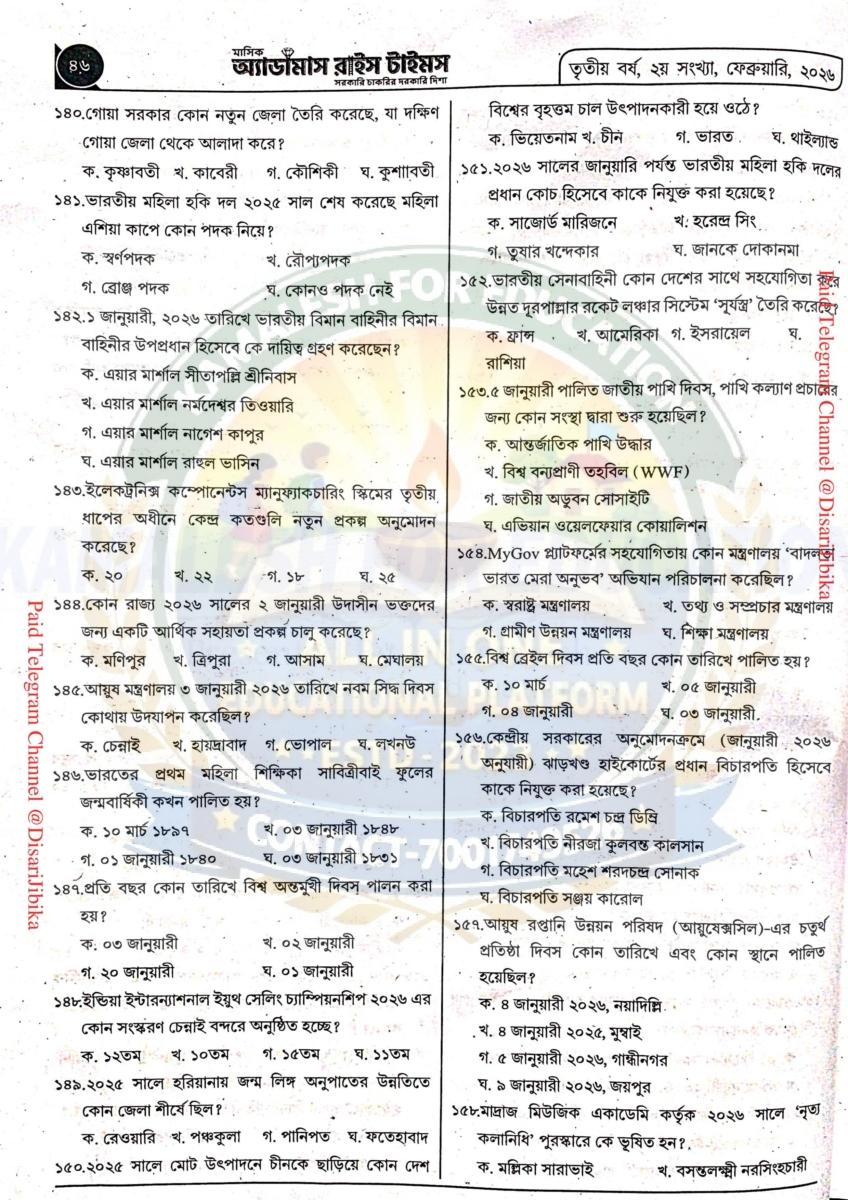 ৪৬
মাসিক
অ্যাডামাস রাইস টাইমস
সরকারি চাকরির দরকারি দিশা
তৃতীয় বর্ষ, ২য় সংখ্যা, ফেব্রুয়ারি, ২০২৬
১৪০.গোয়া সরকার কোন নতুন জেলা তৈরি করেছে, যা দক্ষিণ
গোয়া জেলা থেকে আলাদা করে?
ক. কৃষ্ণাবতী খ. কাবেরী গ. কৌশিকী ঘ. কুশাবতী
১৪১.ভারতীয় মহিলা হকি দল ২০২৫ সাল শেষ করেছে মহিলা
এশিয়া কাপে কোন পদক নিয়ে?
ক. স্বর্ণপদক খ. রৌপ্যপদক
গ. ব্রোঞ্জ পদক ঘ. কোনও পদক নেই
১৪২.১ জানুয়ারী, ২০২৬ তারিখে ভারতীয় বিমান বাহিনীর বিমান
বাহিনীর উপপ্রধান হিসেবে কে দায়িত্ব গ্রহণ করেছেন?
ক. এয়ার মার্শাল সীতাপল্লি শ্রীনিবাস
খ. এয়ার মার্শাল নর্মদেশ্বর তিওয়ারি
গ. এয়ার মার্শাল নাগেশ কাপুর
ঘ. এয়ার মার্শাল রাহুল ভাসিন
১৪৩.ইলেকট্রনিক্স কম্পোনেন্টস ম্যানুফ্যাকচারিং স্কিমের তৃতীয়
ধাপের অধীনে কেন্দ্র কতগুলি নতুন প্রকল্প অনুমোদন
করেছে?
ক. ২০ খ. ২২ গ. ১৮ ঘ. ২৫
১৪৪.কোন রাজ্য ২০২৬ সালের ২ জানুয়ারী উদাসীন ভক্তদের
জন্য একটি আর্থিক সহায়তা প্রকল্প চালু করেছে?
ক. মণিপুর খ. ত্রিপুরা গ. আসাম ঘ. মেঘালয়
১৪৫.আয়ুষ মন্ত্রণালয় ৩ জানুয়ারী ২০২৬ তারিখে নবম সিদ্ধ দিবস
কোথায় উদযাপন করেছিল?
ক. চেন্নাই খ. হায়দ্রাবাদ গ. ভোপাল ঘ. লখনউ
১৪৬.ভারতের প্রথম মহিলা শিক্ষিকা সাবিত্রীবাই ফুলের
জন্মবার্ষিকী কখন পালিত হয়?
ক. ১০ মার্চ ১৮৯৭ খ. ০৩ জানুয়ারী ১৮৪৮
গ. ০১ জানুয়ারী ১৮৪০ ঘ. ০৩ জানুয়ারী ১৮৩১
১৪৭.প্রতি বছর কোন তারিখে বিশ্ব অন্তর্মুখী দিবস পালন করা
হয়?
ক. ০৩ জানুয়ারী খ. ০২ জানুয়ারী
গ. ২০ জানুয়ারী ঘ. ০১ জানুয়ারী
১৪৮.ইন্ডিয়া ইন্টারন্যাশনাল ইয়ুথ সেলিং চ্যাম্পিয়নশিপ ২০২৬ এর
কোন সংস্করণ চেন্নাই বন্দরে অনুষ্ঠিত হচ্ছে?
ক. ১২তম খ. ১০তম গ. ১৫তম ঘ. ১১তম
১৪৯.২০২৫ সালে হরিয়ানায় জন্ম লিঙ্গ অনুপাতের উন্নতিতে
কোন জেলা শীর্ষে ছিল?
ক. রেওয়ারি খ. পঞ্চকুলা গ. পানিপত ঘ. ফতেহাবাদ
১৫০.২০২৫ সালে মোট উৎপাদনে চীনকে ছাড়িয়ে কোন দেশ
বিশ্বের বৃহত্তম চাল উৎপাদনকারী হয়ে ওঠে?
ক. ভিয়েতনাম খ. চীন গ. ভারত ঘ. থাইল্যান্ড
১৫১.২০২৬ সালের জানুয়ারি পর্যন্ত ভারতীয় মহিলা হকি দলের
প্রধান কোচ হিসেবে কাকে নিযুক্ত করা হয়েছে?
ক. সাজোর্ড মারিজনে খ. হরেন্দ্র সিং
গ. তুষার খন্দেকার ঘ. জানকে দোকানমা
১৫২.ভারতীয় সেনাবাহিনী কোন দেশের সাথে সহযোগিতা করে
উন্নত দূরপাল্লার রকেট লঞ্চার সিস্টেম ‘সূর্যাস্ত্র’ তৈরি করেছে?
ক. ফ্রান্স খ. আমেরিকা গ. ইসরায়েল ঘ.
রাশিয়া
১৫৩.৫ জানুয়ারী পালিত জাতীয় পাখি দিবস, পাখি কল্যাণ প্রচারের
জন্য কোন সংস্থা দ্বারা শুরু হয়েছিল?
ক. আন্তর্জাতিক পাখি উদ্ধার
খ. বিশ্ব বন্যপ্রাণী তহবিল (WWF)
গ. জাতীয় অডুবন সোসাইটি
ঘ. এভিয়ান ওয়েলফেয়ার কোয়ালিশন
১৫৪.MyGov প্ল্যাটফর্মের সহযোগিতায় কোন মন্ত্রণালয় ‘বাদলতা
ভারত মেরা অনুভব’ অভিযান পরিচালনা করেছিল?
ক. স্বরাষ্ট্র মন্ত্রণালয় খ. তথ্য ও সম্প্রচার মন্ত্রণালয়
গ. গ্রামীণ উন্নয়ন মন্ত্রণালয় ঘ. শিক্ষা মন্ত্রণালয়
১৫৫.বিশ্ব ব্রেইল দিবস প্রতি বছর কোন তারিখে পালিত হয়?
ক. ১০ মার্চ খ. ০৫ জানুয়ারী
গ. ০৪ জানুয়ারী ঘ. ০৩ জানুয়ারী.
১৫৬.কেন্দ্রীয় সরকারের অনুমোদনক্রমে (জানুয়ারী ২০২৬
অনুযায়ী) ঝাড়খণ্ড হাইকোর্টের প্রধান বিচারপতি হিসেবে
কাকে নিযুক্ত করা হয়েছে?
ক. বিচারপতি রমেশ চন্দ্র ডিম্রি
খ. বিচারপতি নীরজা কুলবন্ত কালসান
গ. বিচারপতি মহেশ শরদচন্দ্র সোনাক
ঘ. বিচারপতি সঞ্জয় কারোল
১৫৭.আয়ুষ রপ্তানি উন্নয়ন পরিষদ (আয়ুষেক্সসিল)-এর চতুর্থ
প্রতিষ্ঠা দিবস কোন তারিখে এবং কোন স্থানে পালিত
হয়েছিল?
ক. ৪ জানুয়ারী ২০২৬, নয়াদিল্লি
খ. ৪ জানুয়ারী ২০২৫, মুম্বাই
গ. ৫ জানুয়ারী ২০২৬, গান্ধীনগর
ঘ. ৯ জানুয়ারী ২০২৬, জয়পুর
১৫৮.মাদ্রাজ মিউজিক একাডেমি কর্তৃক ২০২৬ সালে ‘নৃত্য
কলানিধি’ পুরস্কারে কে ভূষিত হন?
ক. মল্লিকা সারাভাই খ. বসন্তলক্ষ্মী নরসিংহচারী
Paid Telegram Channel @DisariJibika
Paid Telegram Channel @DisariJibika
FOR EDUCATION
ALL IN
EDUCATIONAL PLATFORM